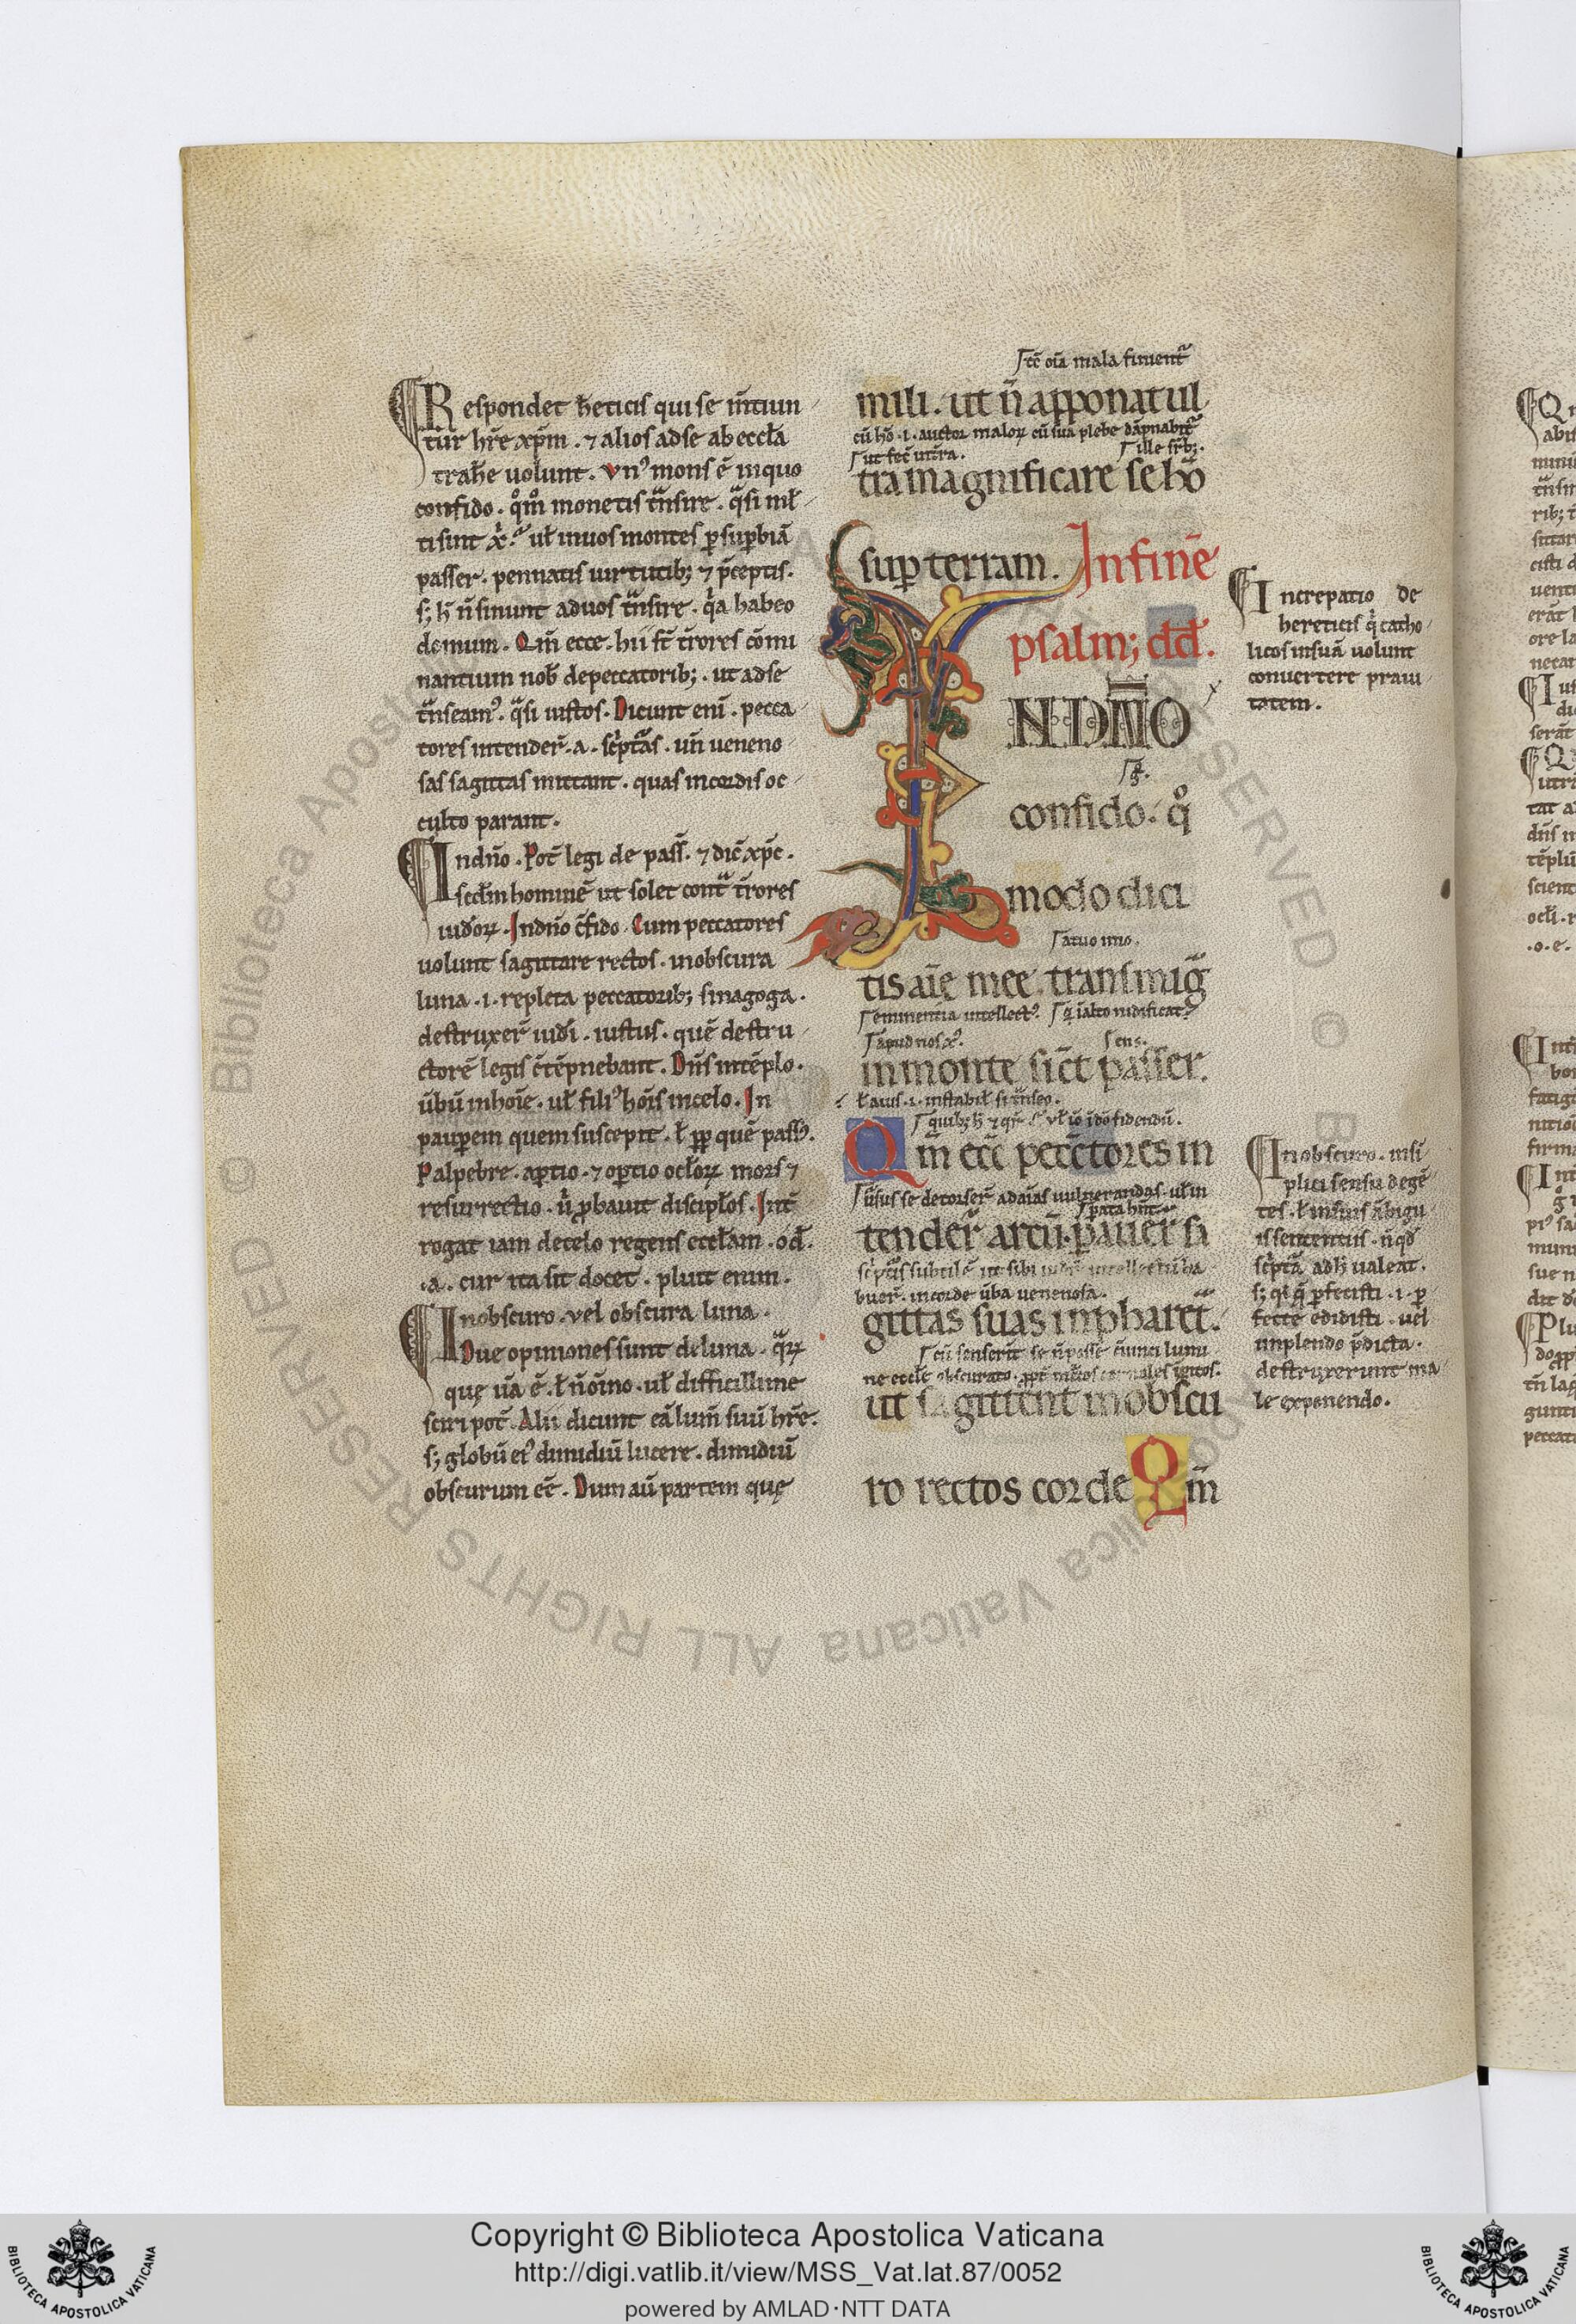 R espondet h̄eticis qui se m̄tiun
tur hr̄e xp̄m . ⁊ alios ad se ab eccl̄a
trah̄e uolunt . vn᾽ mons ē in quo
confido . qͦm̊ monetis tn̄sire . qͣsi ml̄
ti sint
passer . pennatis uirtutib; ⁊ p̄ceptis .
s; h̄ n̄ sinunt ad uos tn̄sire . qͥa habeo
domum . Qm̄ ecce . hii st̄ tr̄rores cōmi
nantium nob̄ de peccatorib; . ut ad se
tn̄seam᾽ . qͣsi iustos . Dicunt enī . pecca
tores intender̄ . a . scͥptͣas . un̄ ueneno
sas sagittas mittant . quas in cordis oc
culto parant .
I n dn̄o . Pot̄ legi de pass̄ . ⁊ dic̄ xp̄c .
scd̄m hominē ut solet contͣ tr̄rores
iudōꝝ . In dn̄o c̄fido . Cum peccatores
uolunt sagittare rectos . in obscura
luna . i . repleta peccatorib; sinagoga .
destruxer̄ iudī . iustus . quē destru
ctorē legis c̄tēpnebant . Dn̄s in tēplo .
ūbū in hoīe . ul̄ fili᾽ hoīs in celo . In
pauꝑem quem suscepit . ł ꝓꝑ quē pass᾽ .
Palpebre . aꝑtio . ⁊ oꝑtio ocl̄oꝝ mors ⁊
resurrectio . ꝓbauit discipl̄os . Int̄
rogat iam de celo regens eccl̄am . od̄ .
. a . cur ita sit docet . pluit enim .
I n obscuro . vel obscura luna .
Due opiniones sunt de luna . qͣꝝ
quę ūa ē . ł n̄ oīno . ul̄ difficillime
sciri pot̄ . Alii dicunt eā lum̄ suū hr̄e .
s; globū ei᾽ dimidiū lucere . dimidiū
obscurum eē . Dum aū partem quę
tc̄ oīa mala finientᷣ
mili . ut n̄ apponat ul
cū hō . i . auctor maloꝝ cū sua plebe dāpnabitᷣ
ut fec̄ . ille
tra magnificare se hō
suꝑ terram . In finē
psalm; dd̄ .
IN DN̄O
confido . qͦ
modo dici
a tuo imo .
tis aīę mee . transmigͣ
eminentia intellect᾽ . in alto nidificat
apud nos
in monte sic̄t passer .
ł auis . i . instabil̄ si tn̄seo .
Qm̄ ecc̄e pecc̄tores in
se detorser̄ ad aīas uulnerandas . ul̄ in
tender̄ arcū . ꝑauer̄ sa
scͥptis subtile ut sibi intellectū ha
buer̄ . in corde ūba uenenosa .
gittas suas in pharet̄ .
cū senserīt se n̄ posse lumi
ne eccl̄e obscurato .
ut sagittent in obscu
ro rectos corde Qm̄
I ncrepatio de
hereticis qͥ catho
licos in suā uolunt
conuertere praui
tatem .
I n obscuro . in si
plici sensu degē
tes . ł in suis ābigu
is sententiis . n̄ qd̄
scͥptͣa ad h̄ ualeat .
s; qͥ qͣ ꝑfecisti . i . ꝑ
fecte edidisti . uel
implendo p̄dicta .
destruxerunt ma
le exponendo .
Copyright © Biblioteca Apostolica Vaticana
http://digi.vatlib.it/view/MSS_Vat.lat.87/0052
powered by AMLAD·NTT DATA
BIBLIOTECA APOSTOLICA VATICANA
BIBLIOTECA APOSTOLICA VATICANA